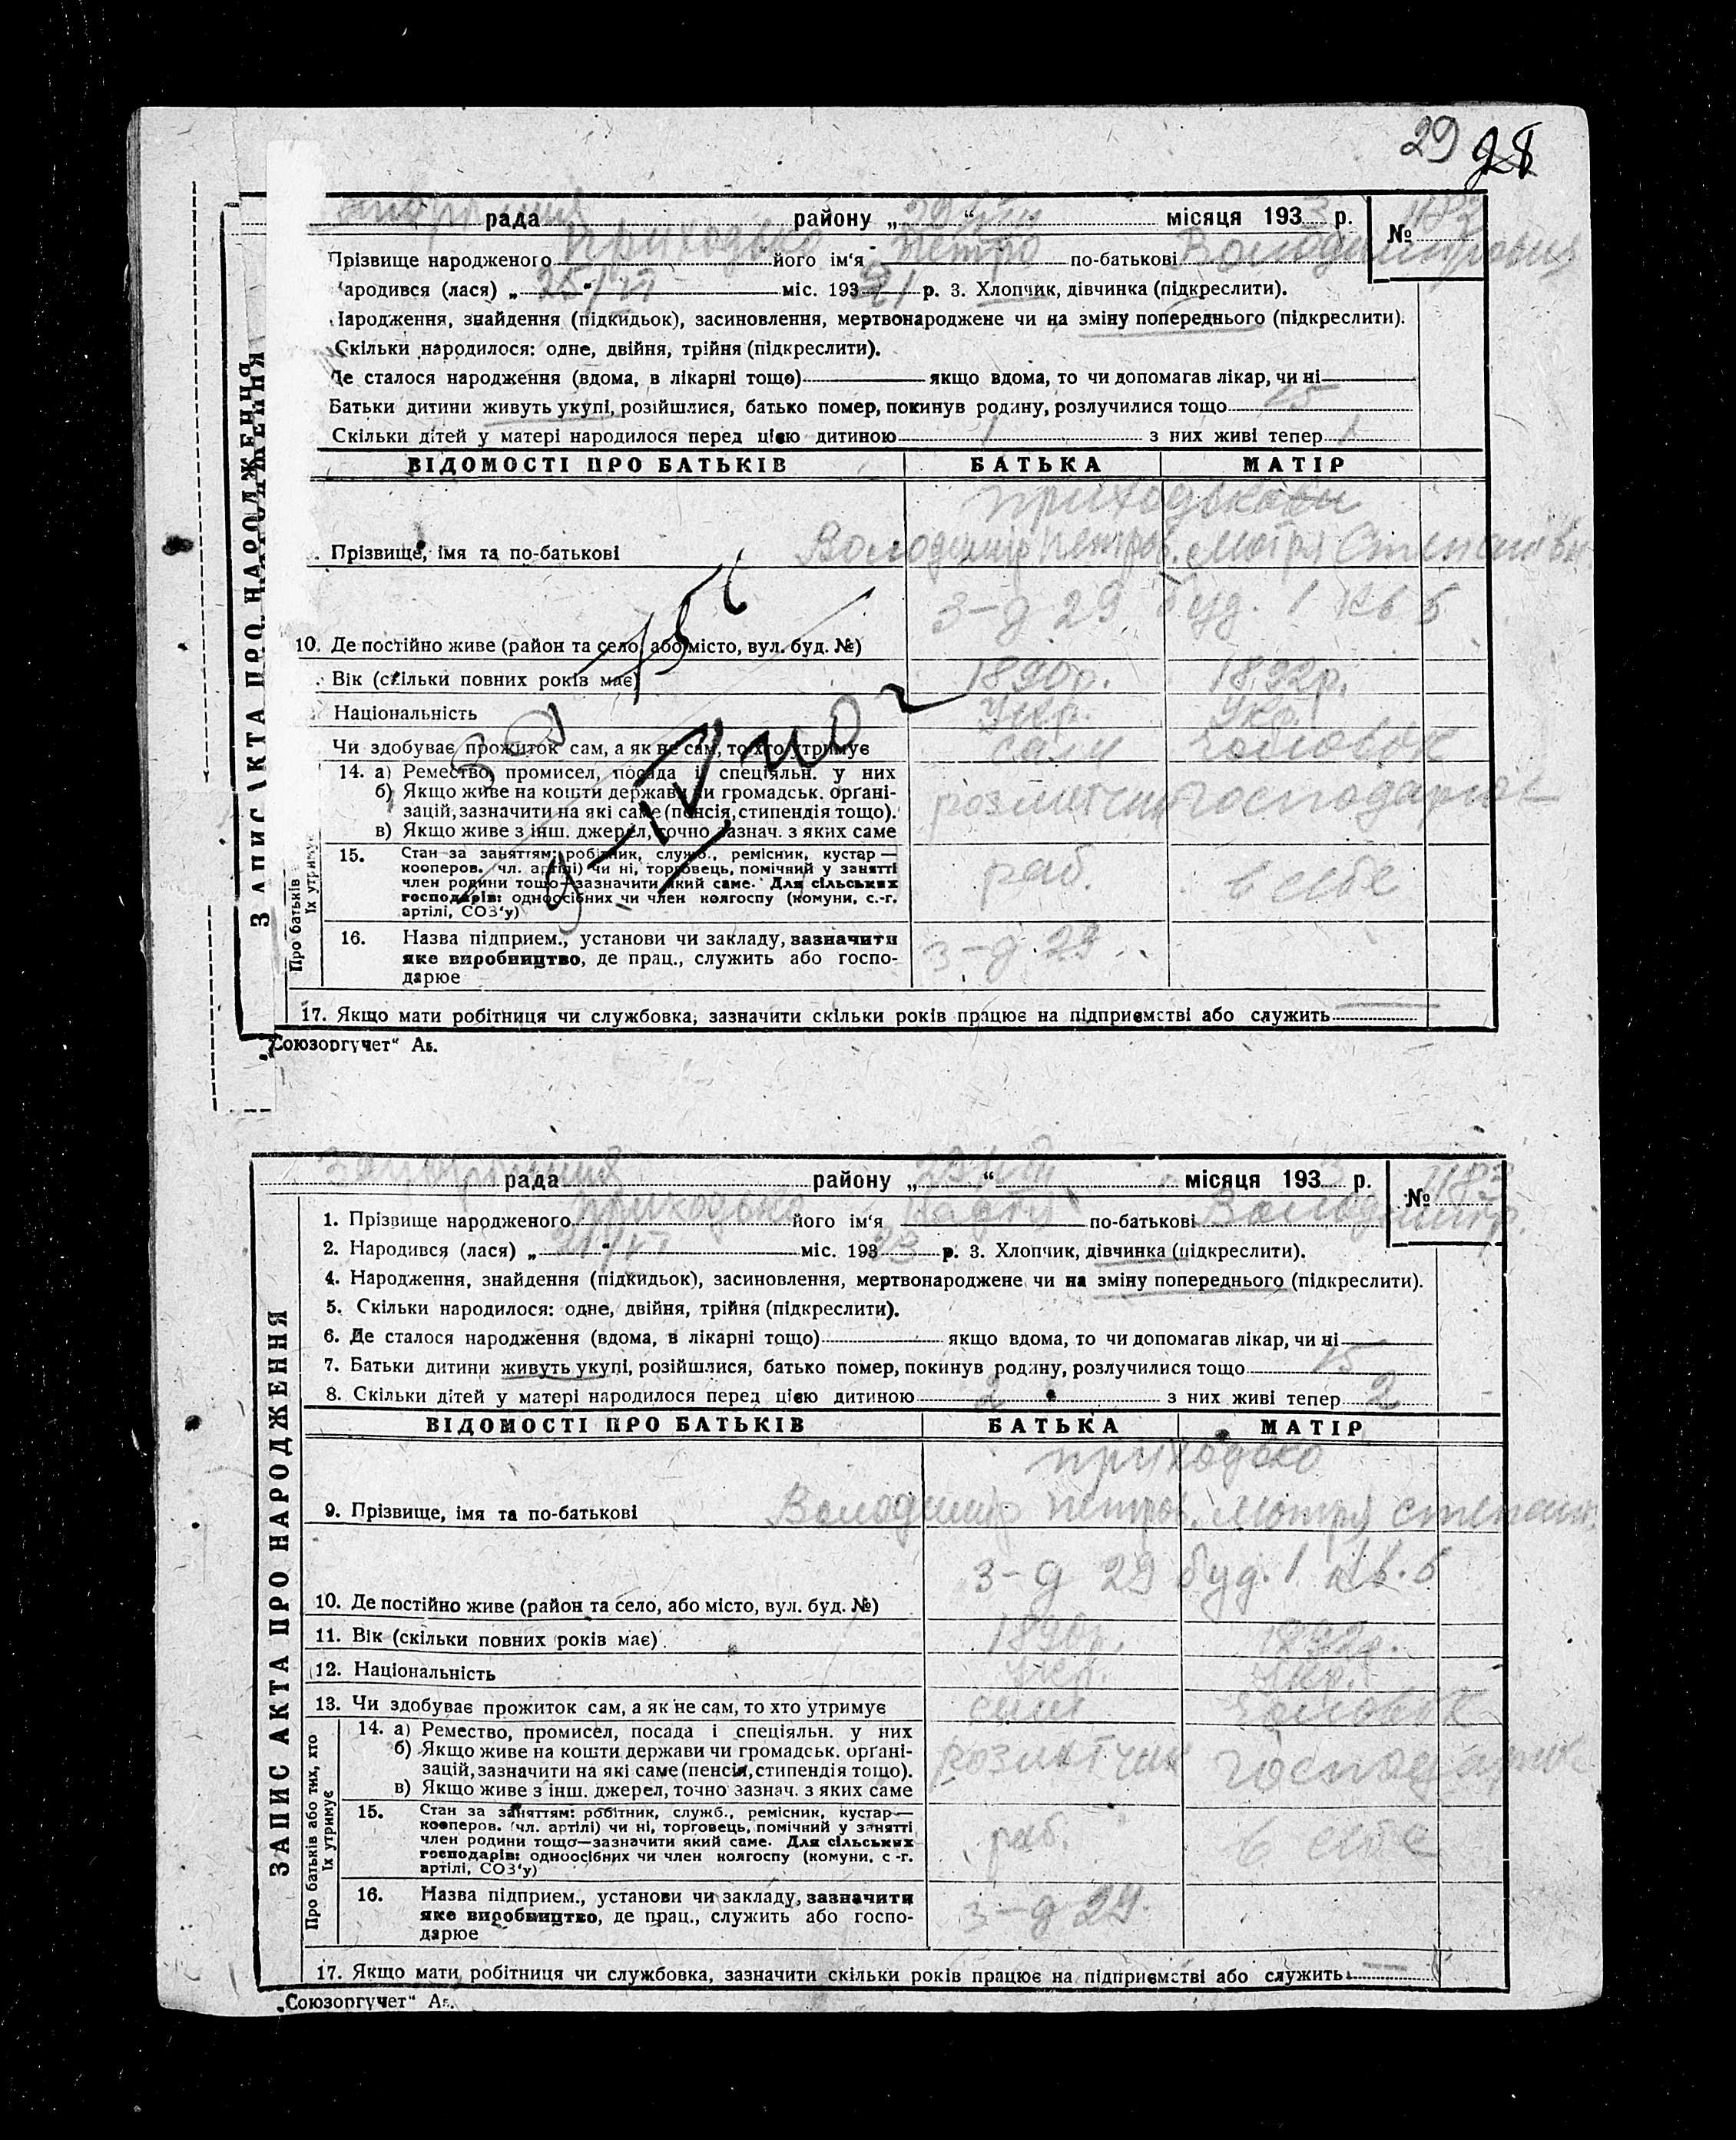 29 28
рада району „ 29/VIII “ місяця 1933 р. № 1182
Прізвище народженого Приходько його ім'я Петро по-батькові Володимирович
Народився (лася) „ 25/VI “ міс. 193 21 р. 3. Хлопчик, дівчинка (підкреслити).
Народження, знайдення (підкидьок), засиновлення, мертвонароджене чи на зміну попереднього (підкреслити).
Скільки народилося: одне, двійня, трійня (підкреслити).
Де сталося народження (вдома, в лікарні тощо) якщо вдома, то чи допомагав лікар, чи ні
Батьки дитини живуть укупі, розійшлися, батько помер, покинув родину, розлучилися тощо 15
Скільки дітей у матері народилося перед цією дитиною 1 з них живі тепер 1
ВІДОМОСТІ ПРО БАТЬКІВ БАТЬКА МАТІР
Приходькови
Прізвище, імя та по-батькові Володимир Петров. Мотря Степанівн
З-д 29 буд. 1 кв 5
10. Де постійно живе (район та село, або місто, вул. буд. №)
Вік (скільки повних років має) 1890р. 1892р.
Національність Укр. Укр.
Чи здобуває прожиток сам, а як не сам, то хто утримує сам чоловік
14. а) Ремество, промисел, посада і спеціяльн. у них
б) Якщо живе на кошти держави чи громадськ. орґані-
зацій, зазначити на які саме (пенсія, стипендія тощо). розмітчик господарює
в) Якщо живе з інш. джерел, точно зазнач. з яких саме
15. Стан за заняттям: робітник, служб., ремісник, кустар—
кооперов. чл. артілі) чи ні, торговець, помічний у занятті
член родини тощо—зазначити який саме. Для сільських раб. в себе
господарів: одноосібних чи член колгоспу (комуни, с.-г.
артілі, СОЗ'у)
16. Назва підприєм., установи чи закладу, зазначити З-д 29
яке виробництво, де прац., служить або госпо-
дарює
17. Якщо мати робітниця чи службовка, зазначити скільки років працює на підприємстві або служить
„Союзоргучет“
Запорізька рада району „ 29/VIII “ місяця 1933 р. № 1183
1. Прізвище народженого Приходько його ім'я Надія по-батькові Володимир.
2. Народився (лася) „ 21/VI “ міс. 193 23 р. 3. Хлопчик, дівчинка (підкреслити).
4. Народження, знайдення (підкидьок), засиновлення, мертвонароджене чи на зміну попереднього (підкреслити).
5. Скільки народилося: одне, двійня, трійня (підкреслити).
6. Де сталося народження (вдома, в лікарні тощо) якщо вдома, то чи допомагав лікар, чи ні
7. Батьки дитини живуть укупі, розійшлися, батько помер, покинув родину, розлучилися тощо 15
8. Скільки дітей у матері народилося перед цією дитиною 2 з них живі тепер 2
ВІДОМОСТІ ПРО БАТЬКІВ БАТЬКА МАТІР
Приходько
9. Прізвище, імя та по-батькові Володимир Петров. Мотря Степан.
З-д 29 буд. 1 кв. 5
10. Де постійно живе (район та село, або місто, вул. буд. №)
11. Вік (скільки повних років має) 1890р. 1892р.
12. Національність Укр. Укр.
13. Чи здобуває прожиток сам, а як не сам, то хто утримує сам чоловік
14. а) Ремество, промисел, посада і спеціяльн. у них
б) Якщо живе на кошти держави чи громадськ. орґані- розмітчик господарює
зацій, зазначити на які саме (пенсія, стипендія тощо).
в) Якщо живе з інш. джерел, точно зазнач. з яких саме
15. Стан за заняттям: робітник, служб., ремісник, кустар—
кооперов. (чл. артілі) чи ні, торговець, помічний у занятті
член родини тощо—зазначити який саме. Для сільських раб. в себе
господарів: одноосібних чи член колгоспу (комуни, с.-г.
артілі, СОЗ'у)
16. Назва підприєм., установи чи закладу, зазначити З-д 29.
яке виробництво, де прац., служить або госпо-
дарює
17. Якщо мати робітниця чи службовка, зазначити скільки років працює на підприємстві або служить
„Союзоргучет“
ЗАПИС АКТА ПРО НАРОДЖЕННЯ
Про батьків
їх утримує
ЗАПИС АКТА ПРО НАРОДЖЕННЯ
Про батьків або тих, хто
їх утримує